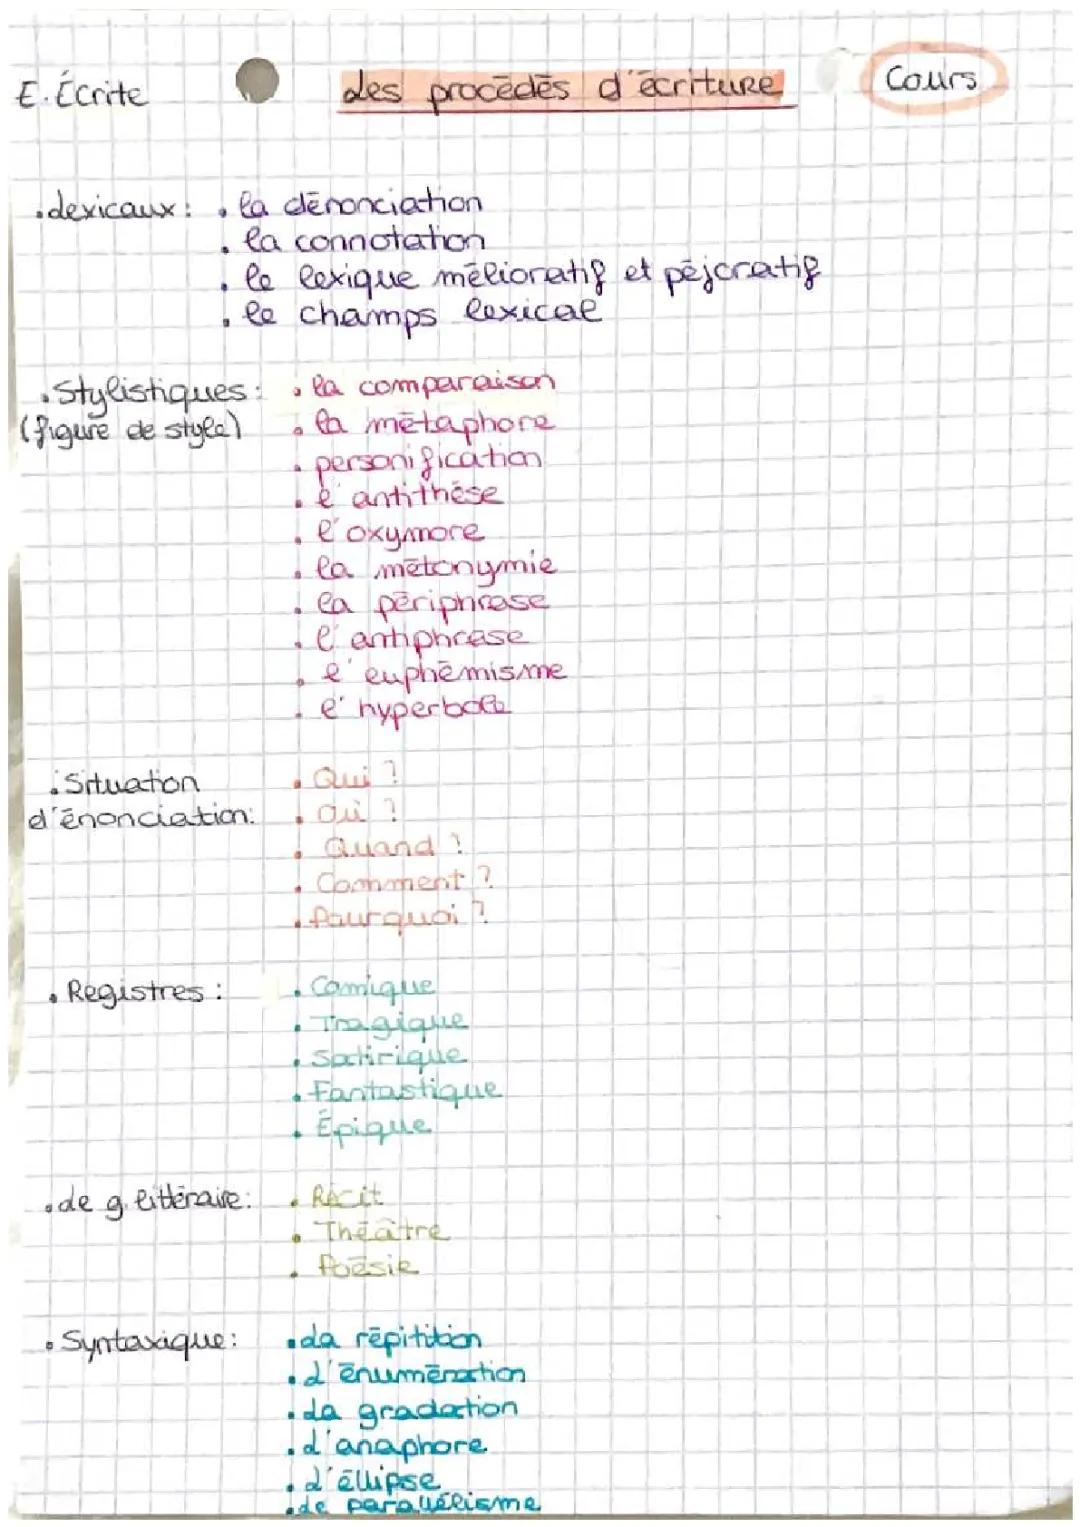 E. Écrite
Les procédés d'écriture
Cours
. Lexicaux : . la dénonciation
. la connotation
. le lexique mélioratif et péjoratif
. le champs lexical
. Stylistiques : . la comparaison
(figure de style) . la métaphore
. personification
. l'antithése
. l'oxymore
. la métonymie
. la périphrase
. l'antiphrase
. l'euphémisme
. l'hyperbole
. Situation . Qui ?
d'énonciation : . Oui ?
. Quand ?
. Comment ?
. Pourquoi ?
. Registres : . Comique
. Tragique
. Satirique
. Fantastique
. Épique
. de g. littéraire : . Récit
. Théâtre
. Poésie
. Syntaxique : . La répitition
. L'énumération
. La gradation
. L'anaphore
. L'éllipse
. Le parallélisme